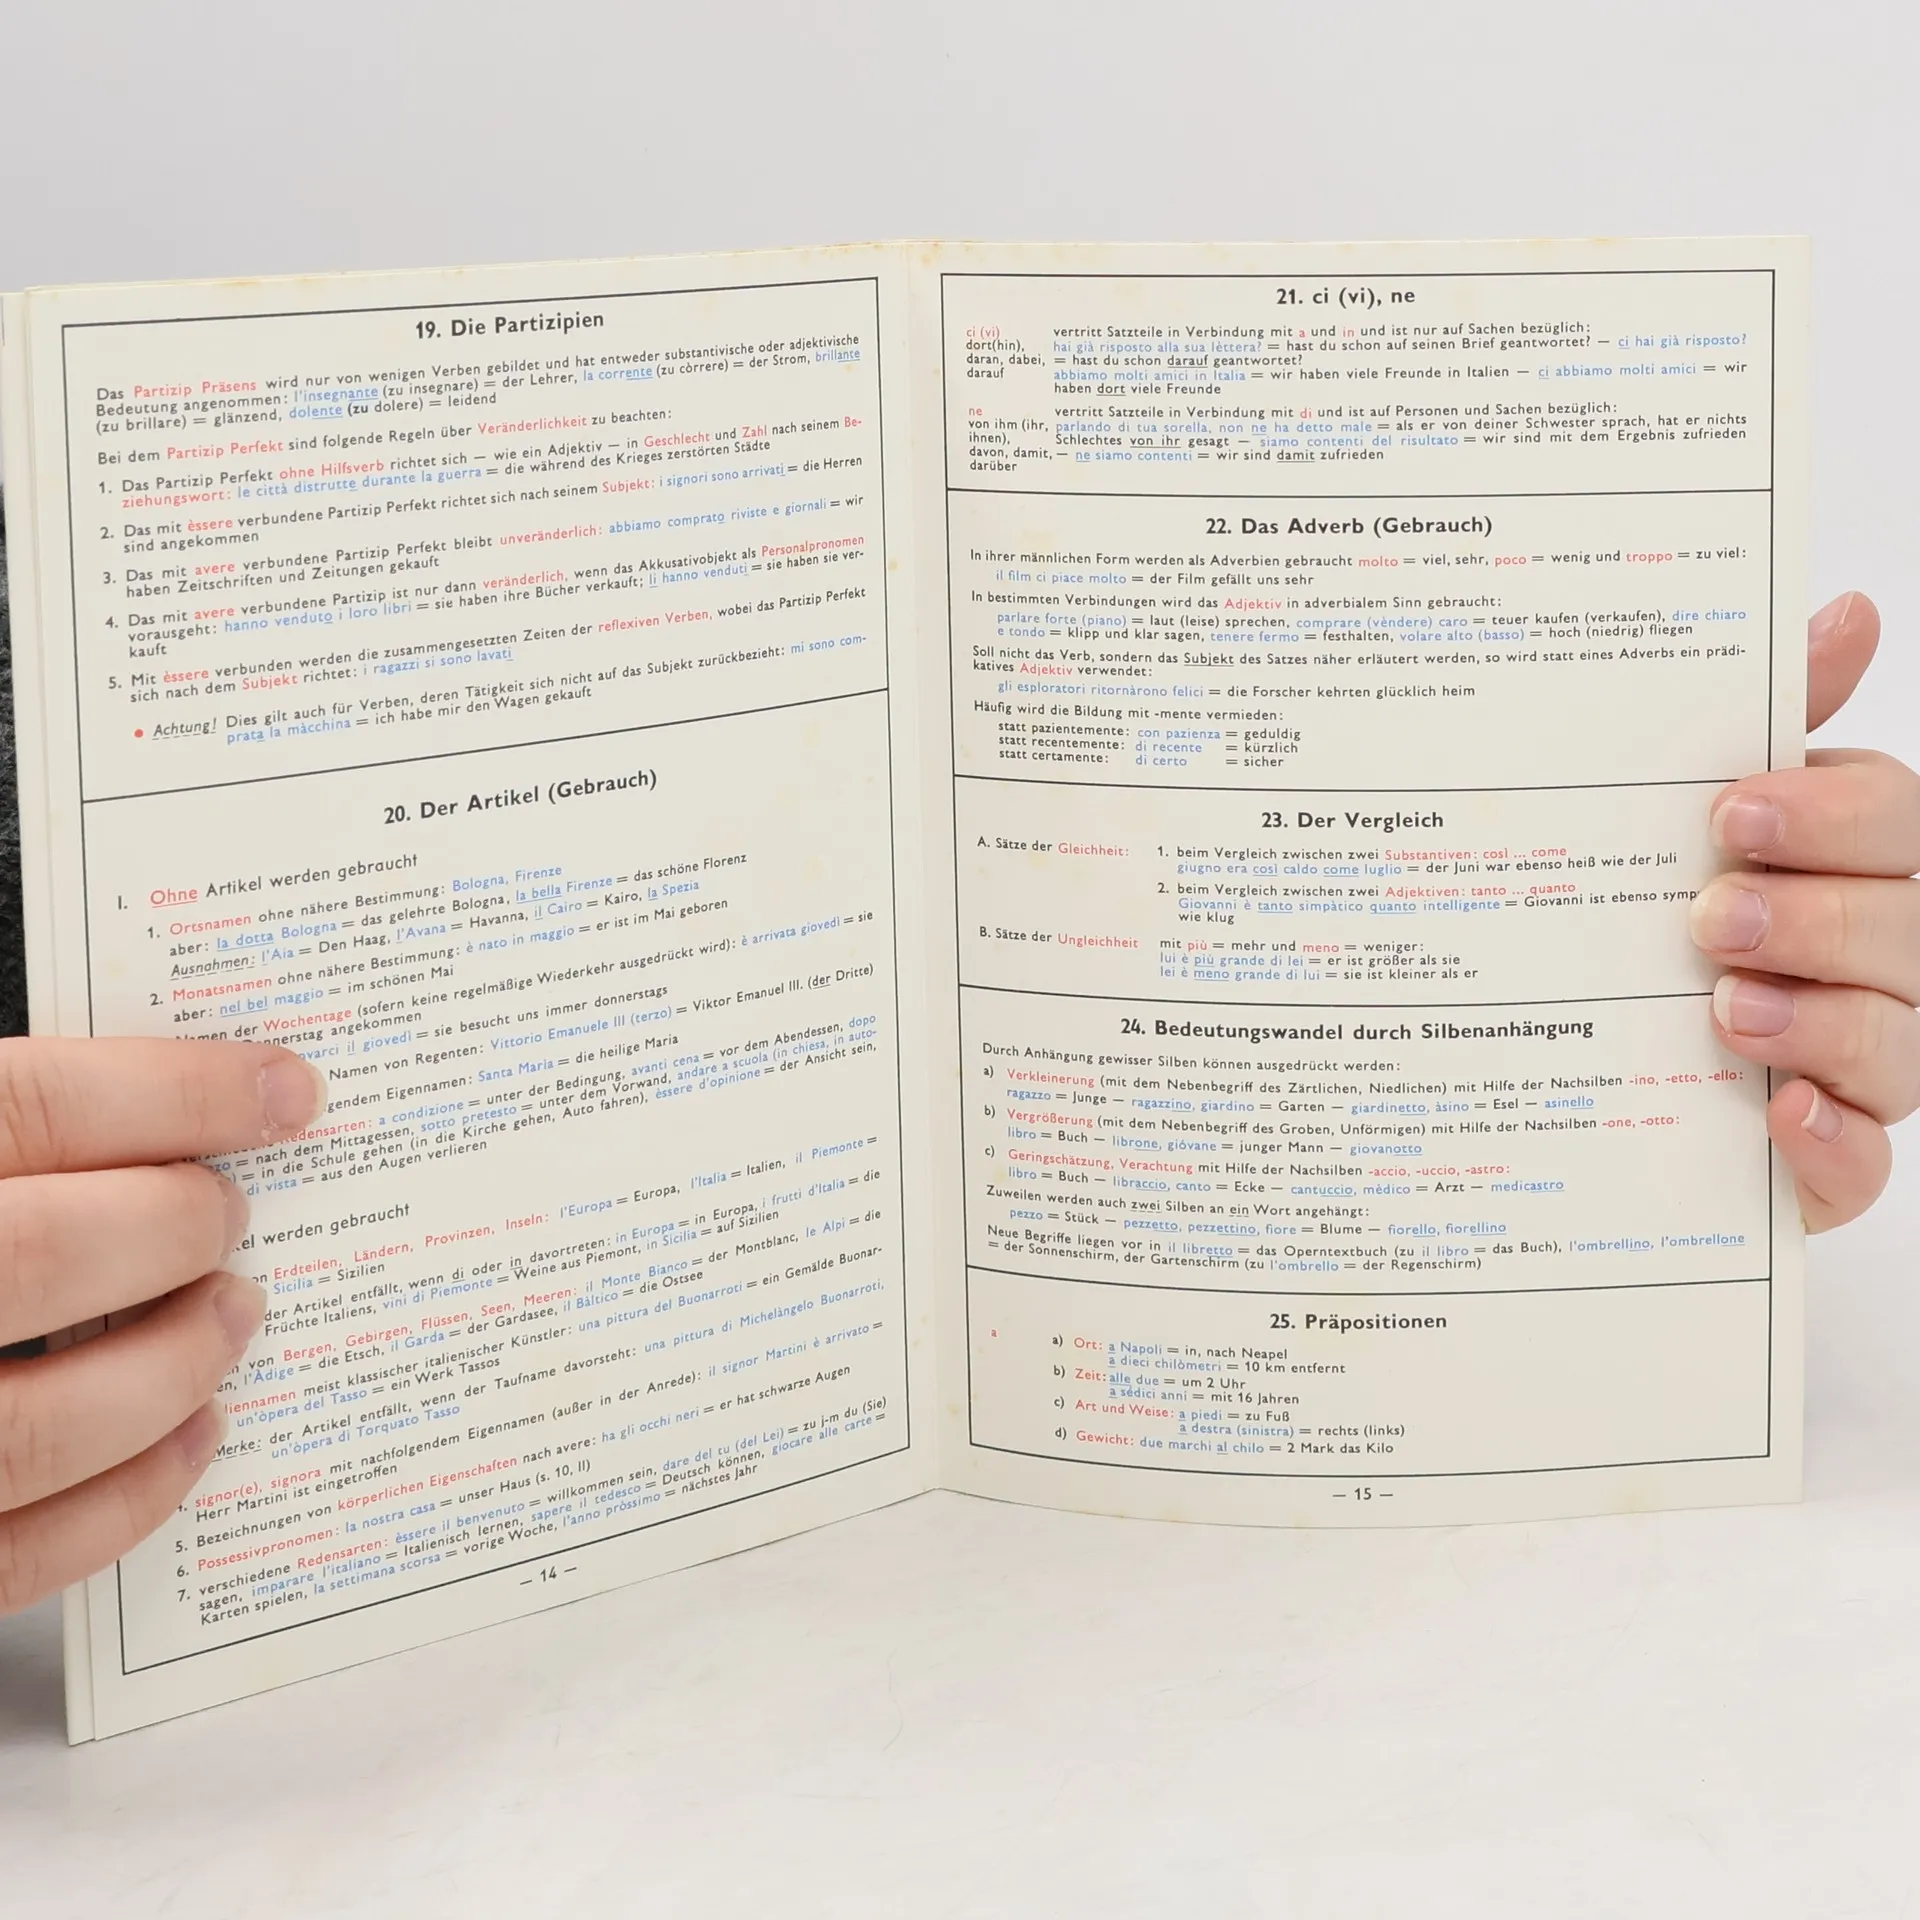 19. Die Partizipien
Das Partizip Präsens wird nur von wenigen Verben gebildet und hat entweder substantivische oder adjektivische
Bedeutung angenommen: l'insegnante (zu insegnare) = der Lehrer, la corrente (zu còrrere) = der Strom, brillante
(zu brillare) = glänzend, dolente (zu dolere) = leidend
Bei dem Partizip Perfekt sind folgende Regeln über Veränderlichkeit zu beachten:
1. Das Partizip Perfekt ohne Hilfsverb richtet sich — wie ein Adjektiv — in Geschlecht und Zahl nach seinem Be-
ziehungswort: le città distrutte durante la guerra = die während des Krieges zerstörten Städte
2. Das mit èssere verbundene Partizip Perfekt richtet sich nach seinem Subjekt: i signori sono arrivati = die Herren
sind angekommen
3. Das mit avere verbundene Partizip Perfekt bleibt unveränderlich: abbiamo comprato riviste e giornali = wir
haben Zeitschriften und Zeitungen gekauft
4. Das mit avere verbundene Partizip ist nur dann veränderlich, wenn das Akkusativobjekt als Personalpronomen
vorausgeht: hanno venduto i loro libri = sie haben ihre Bücher verkauft; li hanno venduti = sie haben sie ver-
kauft
5. Mit èssere verbunden werden die zusammengesetzten Zeiten der reflexiven Verben, wobei das Partizip Perfekt
sich nach dem Subjekt richtet: i ragazzi si sono lavati
• Achtung! Dies gilt auch für Verben, deren Tätigkeit sich nicht auf das Subjekt zurückbezieht: mi sono com-
prata la màcchina = ich habe mir den Wagen gekauft
20. Der Artikel (Gebrauch)
I. Ohne Artikel werden gebraucht
1. Ortsnamen ohne nähere Bestimmung: Bologna, Firenze
aber: la dotta Bologna = das gelehrte Bologna, la bella Firenze = das schöne Florenz
Ausnahmen: l'Aia = Den Haag, l'Avana = Havanna, il Cairo = Kairo, la Spezia
2. Monatsnamen ohne nähere Bestimmung: è nato in maggio = er ist im Mai geboren
aber: nel bel maggio = im schönen Mai
der Wochentage (sofern keine regelmäßige Wiederkehr ausgedrückt wird): è arrivata giovedì = sie
angekommen
il giovedì = sie besucht uns immer donnerstags
Namen von Regenten: Vittorio Emanuele III (terzo) = Viktor Emanuel III. (der Dritte)
Eigennamen: Santa Maria = die heilige Maria
a condizione = unter der Bedingung, avanti cena = vor dem Abendessen, dopo
= nach dem Mittagessen, sotto pretesto = unter dem Vorwand, andare a scuola (in chiesa, in auto-
= in die Schule gehen (in die Kirche gehen, Auto fahren), èssere d'opinione = der Ansicht sein,
di vista = aus den Augen verlieren
werden gebraucht
Erdteilen, Ländern, Provinzen, Inseln: l'Europa = Europa, l'Italia = Italien, il Piemonte =
Sicilia = Sizilien
der Artikel entfällt, wenn di oder in davortreten: in Europa = in Europa, i frutti d'Italia = die
Früchte Italiens, vini di Piemonte = Weine aus Piemont, in Sicilia = auf Sizilien
von Bergen, Gebirgen, Flüssen, Seen, Meeren: il Monte Bianco = der Montblanc, le Alpi = die
l'Àdige = die Etsch, il Garda = der Gardasee, il Bàltico = die Ostsee
meist klassischer italienischer Künstler: una pittura del Buonarroti = ein Gemälde Buonar-
un'òpera del Tasso = ein Werk Tassos
Merke: der Artikel entfällt, wenn der Taufname davorsteht: una pittura di Michelàngelo Buonarroti,
un'òpera di Torquato Tasso
signor(e), signora mit nachfolgendem Eigennamen (außer in der Anrede): il signor Martini è arrivato =
Herr Martini ist eingetroffen
5. Bezeichnungen von körperlichen Eigenschaften nach avere: ha gli occhi neri = er hat schwarze Augen
6. Possessivpronomen: la nostra casa = unser Haus (s. 10, II)
7. verschiedene Redensarten: èssere il benvenuto = willkommen sein, dare del tu (del Lei) = zu j-m du (Sie)
sagen, imparare l'italiano = Italienisch lernen, sapere il tedesco = Deutsch können, giocare alle carte =
Karten spielen, la settimana scorsa = vorige Woche, l'anno pròssimo = nächstes Jahr
— 14 —
21. ci (vi), ne
ci (vi) vertritt Satzteile in Verbindung mit a und in und ist nur auf Sachen bezüglich:
dort(hin), hai già risposto alla sua lèttera? = hast du schon auf seinen Brief geantwortet? — ci hai già risposto?
daran, dabei, = hast du schon darauf geantwortet?
darauf abbiamo molti amici in Italia = wir haben viele Freunde in Italien — ci abbiamo molti amici = wir
haben dort viele Freunde
ne vertritt Satzteile in Verbindung mit di und ist auf Personen und Sachen bezüglich:
von ihm (ihr, parlando di tua sorella, non ne ha detto male = als er von deiner Schwester sprach, hat er nichts
ihnen), Schlechtes von ihr gesagt — siamo contenti del risultato = wir sind mit dem Ergebnis zufrieden
davon, damit, — ne siamo contenti = wir sind damit zufrieden
darüber
22. Das Adverb (Gebrauch)
In ihrer männlichen Form werden als Adverbien gebraucht molto = viel, sehr, poco = wenig und troppo = zu viel:
il film ci piace molto = der Film gefällt uns sehr
In bestimmten Verbindungen wird das Adjektiv in adverbialem Sinn gebraucht:
parlare forte (piano) = laut (leise) sprechen, comprare (vèndere) caro = teuer kaufen (verkaufen), dire chiaro
e tondo = klipp und klar sagen, tenere fermo = festhalten, volare alto (basso) = hoch (niedrig) fliegen
Soll nicht das Verb, sondern das Subjekt des Satzes näher erläutert werden, so wird statt eines Adverbs ein prädi-
katives Adjektiv verwendet:
gli esploratori ritornàrono felici = die Forscher kehrten glücklich heim
Häufig wird die Bildung mit -mente vermieden:
statt pazientemente: con pazienza = geduldig
statt recentemente: di recente = kürzlich
statt certamente: di certo = sicher
23. Der Vergleich
A. Sätze der Gleichheit: 1. beim Vergleich zwischen zwei Substantiven: così ... come
giugno era così caldo come luglio = der Juni war ebenso heiß wie der Juli
2. beim Vergleich zwischen zwei Adjektiven: tanto ... quanto
Giovanni è tanto simpàtico quanto intelligente = Giovanni ist ebenso symp
wie klug
B. Sätze der Ungleichheit mit più = mehr und meno = weniger:
lui è più grande di lei = er ist größer als sie
lei è meno grande di lui = sie ist kleiner als er
24. Bedeutungswandel durch Silbenanhängung
Durch Anhängung gewisser Silben können ausgedrückt werden:
a) Verkleinerung (mit dem Nebenbegriff des Zärtlichen, Niedlichen) mit Hilfe der Nachsilben -ino, -etto, -ello:
ragazzo = Junge — ragazzino, giardino = Garten — giardinetto, àsino = Esel — asinello
b) Vergrößerung (mit dem Nebenbegriff des Groben, Unförmigen) mit Hilfe der Nachsilben -one, -otto:
libro = Buch — librone, gióvane = junger Mann — giovanotto
c) Geringschätzung, Verachtung mit Hilfe der Nachsilben -accio, -uccio, -astro:
libro = Buch — libraccio, canto = Ecke — cantuccio, mèdico = Arzt — medicastro
Zuweilen werden auch zwei Silben an ein Wort angehängt:
pezzo = Stück — pezzetto, pezzettino, fiore = Blume — fiorello, fiorellino
Neue Begriffe liegen vor in il libretto = das Operntextbuch (zu il libro = das Buch), l'ombrellino, l'ombrellone
= der Sonnenschirm, der Gartenschirm (zu l'ombrello = der Regenschirm)
25. Präpositionen
a a) Ort: a Napoli = in, nach Neapel
a dieci chilòmetri = 10 km entfernt
b) Zeit: alle due = um 2 Uhr
a sédici anni = mit 16 Jahren
c) Art und Weise: a piedi = zu Fuß
a destra (sinistra) = rechts (links)
d) Gewicht: due marchi al chilo = 2 Mark das Kilo
— 15 —